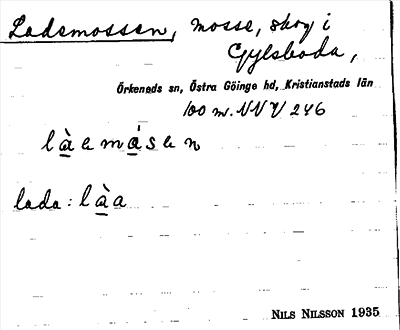 Lademossen, mosse, skog i
Gylsboda,
Örkeneds sn, Östra Göinge hd, Kristianstads län
100 m. NNV 246
là̱emá̱sen
lada: là̱a
NILS NILSSON 1935